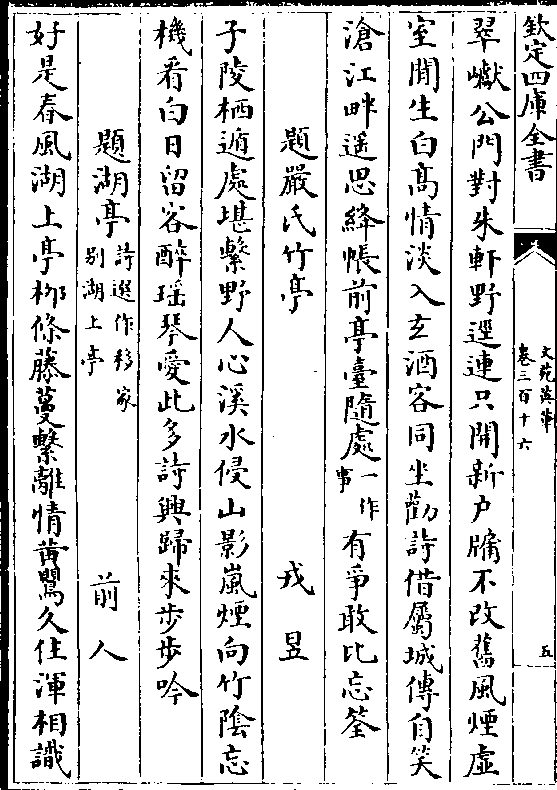 欽定四庫全書
文苑英華
卷三百十六
五
翠巘公門對朱軒野逕連只開新户牖不改舊風煙虛
室閒生白髙情淡入玄酒客同坐勸詩借屬城傳自笑
滄江畔遥思絳帳前亭臺隨處一作事有爭敢比忘筌
題嚴氏竹亭 戎昱
子陵栖遁處堪繫野人心溪水侵山影嵐煙向竹陰忘
機看白日留客醉瑶琴愛此多詩興歸來步步吟
題湖亭詩選作移家别湖上亭 前人
好是春風湖上亭栁條藤蔓繫離情黄鸎久住渾相識